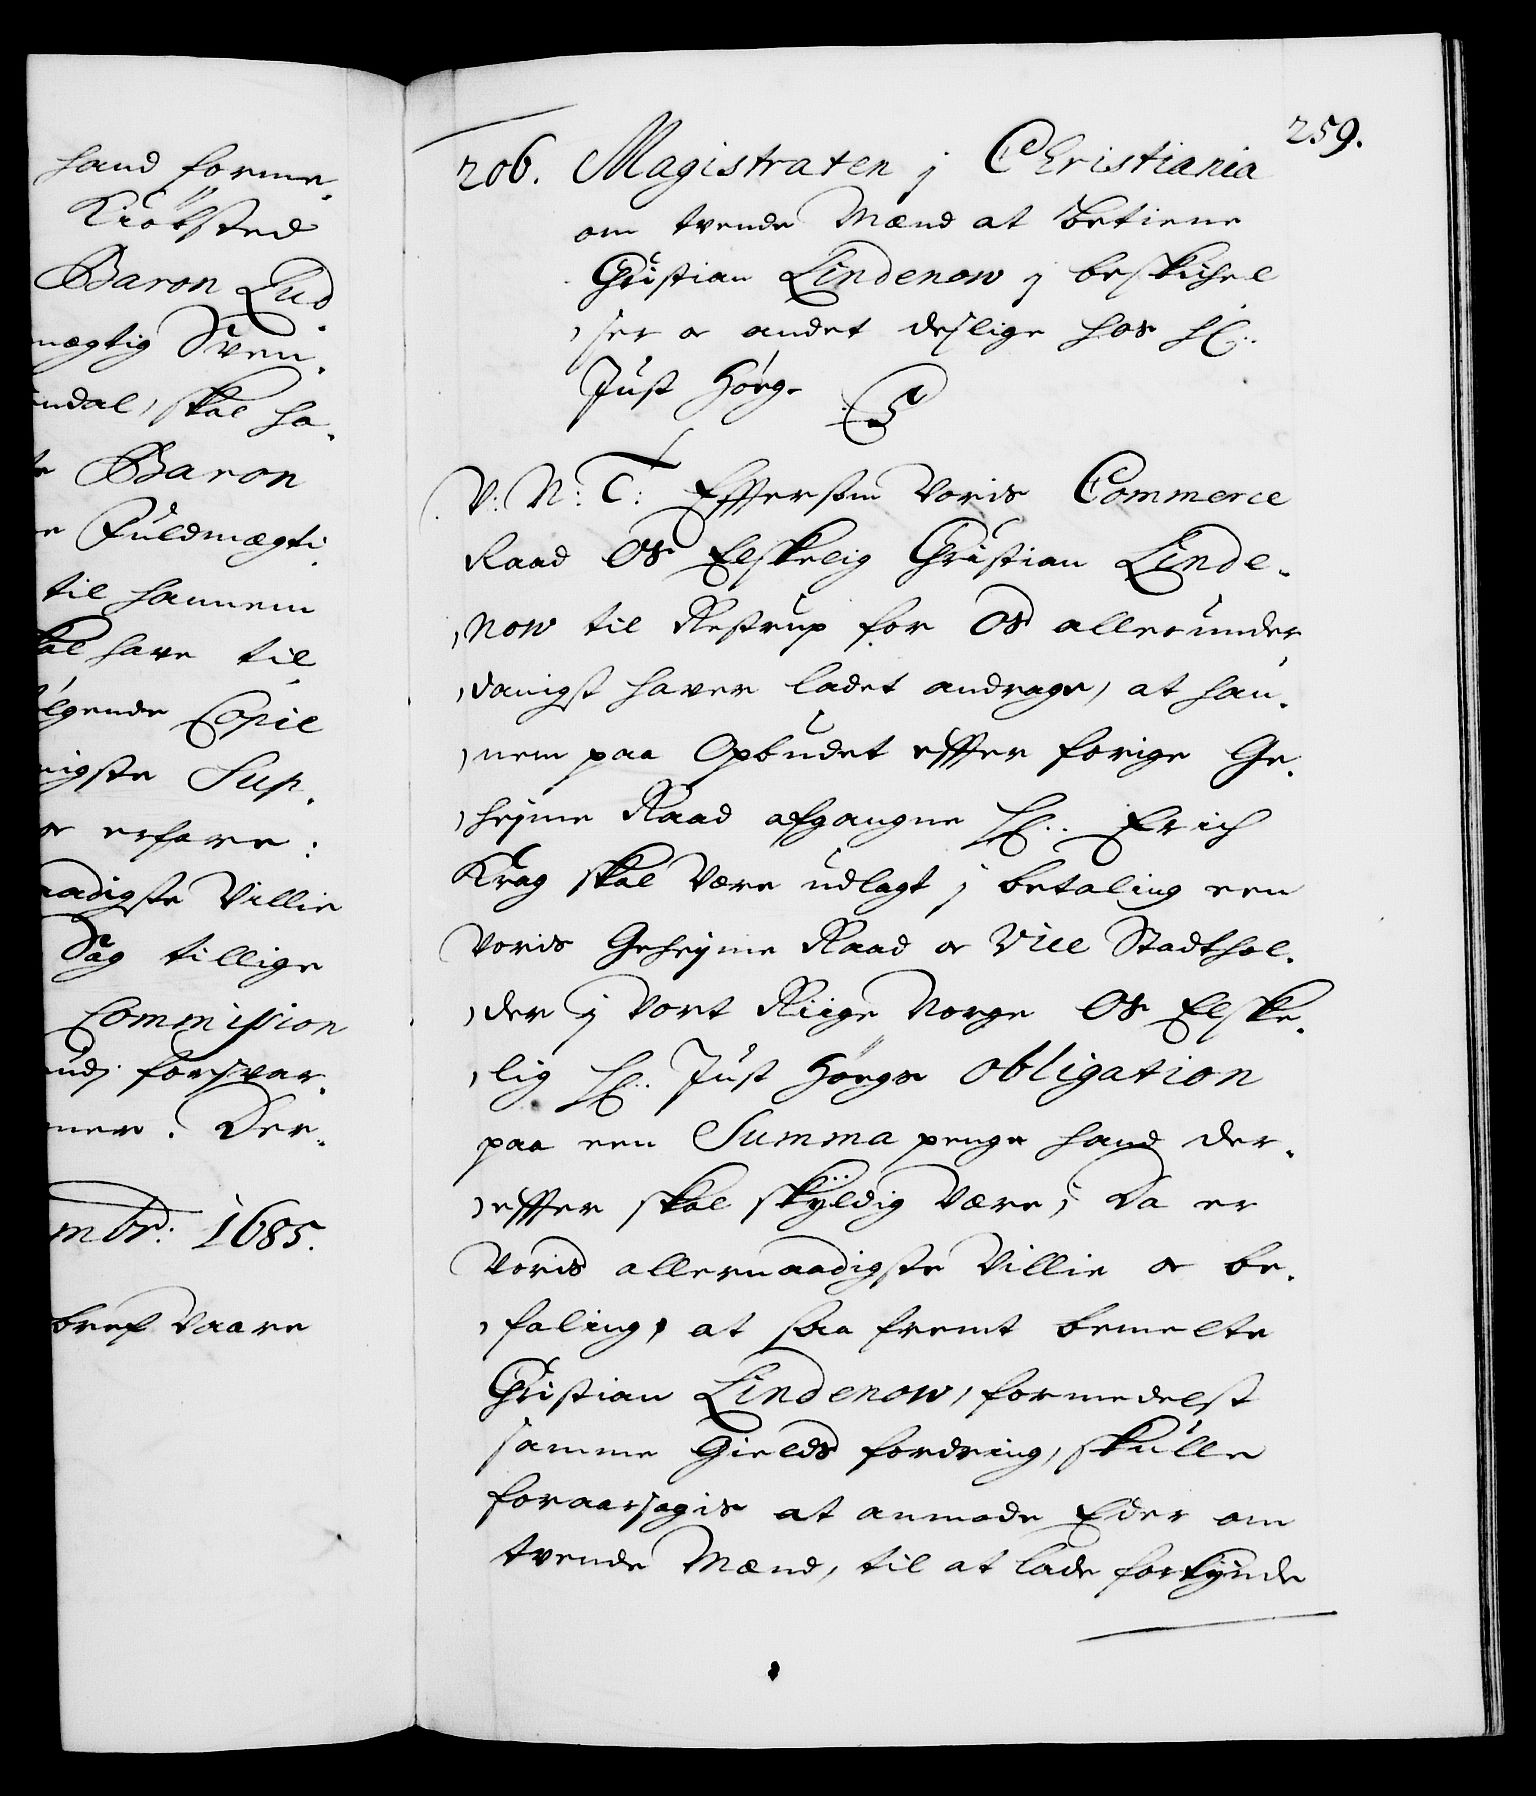 hand forme-
Kiøbsted
Baron Lud
mægtig Sven
endal, skal ha-
Baron
e Fuldmægti
til hannem
kal have til
ølgende Copie
nigste Sup.
oc erfare:
naadigste Villie
Sag tillige
Commission
forsvar.
mer. Der-
mbr: 1685.
bref Vaare
259.
206. Magistraten j Christiania
om tvende Mænd at betiene
Christian Lindenow j beskichel
ser oc andet deslige hos Hr.
Just Høeg.
V: N: T: Effersom Voris Commerce
Raad Os Elskelig Christian Linde-
now til Restrup for Os allerunder
danigst haver ladet andrage, at han-
nem paa Opbudet effter forige Ge-
hejme Raad afgangne Hr. Erich
Krag skal være udlagt j betaling een
Voris Gehejme Raad oc Vice Stadthol-
der j Vort Riige Norge Os Elske-
lig Hr. Just Høegs obligation
paa een Summa penge hand der-
effter skal skÿldig være; Da er
Voris allernaadigste Villie oc be-
faling, at saa fremt bemelte
Christian Lindenow, formedelst
samme Gields fordring, skulle
foraarsagis at anmode Eder om
tvende Mænd, til at lade forkÿnde